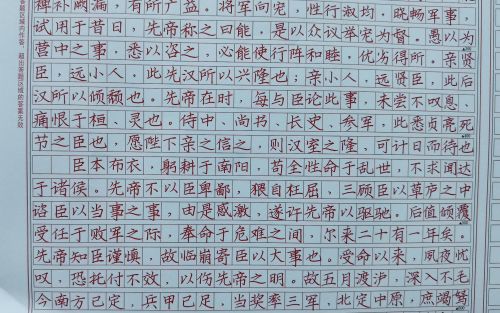 裨补阙漏，有所广益。将军向宠，性行淑均，晓畅军事，
试用于昔日，先帝称之曰能，是以众议举宠为督。愚以为
营中之事，悉以咨之，必能使行阵和睦，优劣得所。亲贤
臣，远小人，此先汉所以兴隆也；亲小人，远贤臣，此后
汉所以倾颓也。先帝在时，每与臣论此事，未尝不叹息、
痛恨于桓、灵也。侍中、尚书、长史、参军，此悉贞亮死
节之臣也，愿陛下亲之信之，则汉室之隆，可计日而待也
臣本布衣，躬耕于南阳，苟全性命于乱世，不求闻达
于诸侯。先帝不以臣卑鄙，猥自枉屈，三顾臣以草庐之中
谘臣以当事之事，由是感激，遂许先帝以驱驰。后值倾覆
受任于败军之际，奉命于危难之间，尔来二十有一年矣。
先帝知臣谨慎，故临崩寄臣以大事也。受命以来，夙夜忧
叹，恐托付不效，以伤先帝之明。故五月渡泸，深入不毛
今南方已定，兵甲已足，当奖率三军，北定中原，庶竭驽
答题区域内作答，超出答题区域的答案无效